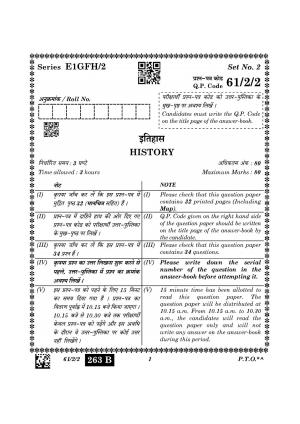 Series E1GFH/2
Set No. 2
प्रश्न-पत्र कोड
Q.P. Code 61/2/2
अनुक्रमांक / Roll No.
परीक्षार्थी प्रश्न-पत्र कोड को उत्तर-पुस्तिका के
मुख-पृष्ठ पर अवश्य लिखें।
Candidates must write the Q.P. Code
on the title page of the answer-book.
इतिहास
HISTORY
निर्धारित समय : 3 घण्टे
अधिकतम अंक : 80
Time allowed : 3 hours
Maximum Marks : 80
नोट
NOTE
(I) कृपया जाँच कर लें कि इस प्रश्न-पत्र में
मुद्रित पृष्ठ 32 (मानचित्र सहित) हैं।
(I) Please check that this question paper
contains 32 printed pages (Including
Map).
(II) प्रश्न-पत्र में दाहिने हाथ की ओर दिए गए
प्रश्न-पत्र कोड को परीक्षार्थी उत्तर-पुस्तिका
के मुख-पृष्ठ पर लिखें।
(II) Q.P. Code given on the right hand side
of the question paper should be written
on the title page of the answer-book by
the candidate.
(III) कृपया जाँच कर लें कि इस प्रश्न-पत्र में
34 प्रश्न हैं।
(III) Please check that this question paper
contains 34 questions.
(IV) कृपया प्रश्न का उत्तर लिखना शुरू करने से
पहले, उत्तर-पुस्तिका में प्रश्न का क्रमांक
अवश्य लिखें।
(IV) Please write down the serial
number of the question in the
answer-book before attempting it.
(V) इस प्रश्न-पत्र को पढ़ने के लिए 15 मिनट
का समय दिया गया है। प्रश्न-पत्र का
वितरण पूर्वाह्न में 10.15 बजे किया जाएगा।
10.15 बजे से 10.30 बजे तक परीक्षार्थी
केवल प्रश्न-पत्र को पढ़ेंगे और इस अवधि
के दौरान वे उत्तर-पुस्तिका पर कोई उत्तर
नहीं लिखेंगे।
(V) 15 minute time has been allotted to
read this question paper. The
question paper will be distributed at
10.15 a.m. From 10.15 a.m. to 10.30
a.m., the candidates will read the
question paper only and will not
write any answer on the answer-book
during this period.
61/2/2
263 B
1
P.T.O.**